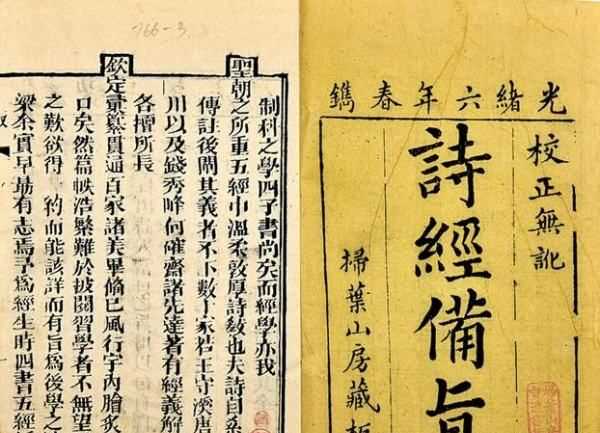 光緒六年春鐫
校正無訛
詩經備旨
掃葉山房藏板
766-3
制科之學四子書尚矣而經學亦我
聖朝之所重五經中溫柔敦厚詩教也夫詩自
傳註後闡其義者不下數十家若王守溪唐
川以及錢秀峰何確齋諸先達著有經義解
各擅所長
欽定彙纂貫通百家諸美畢備已風行宇內膾炙
口矣然篇帙浩繁難於披閱習學者不無望
之歎欲得一約而能該詳而有旨為後學之
梁余實早暮有志焉予為經生時四書五經